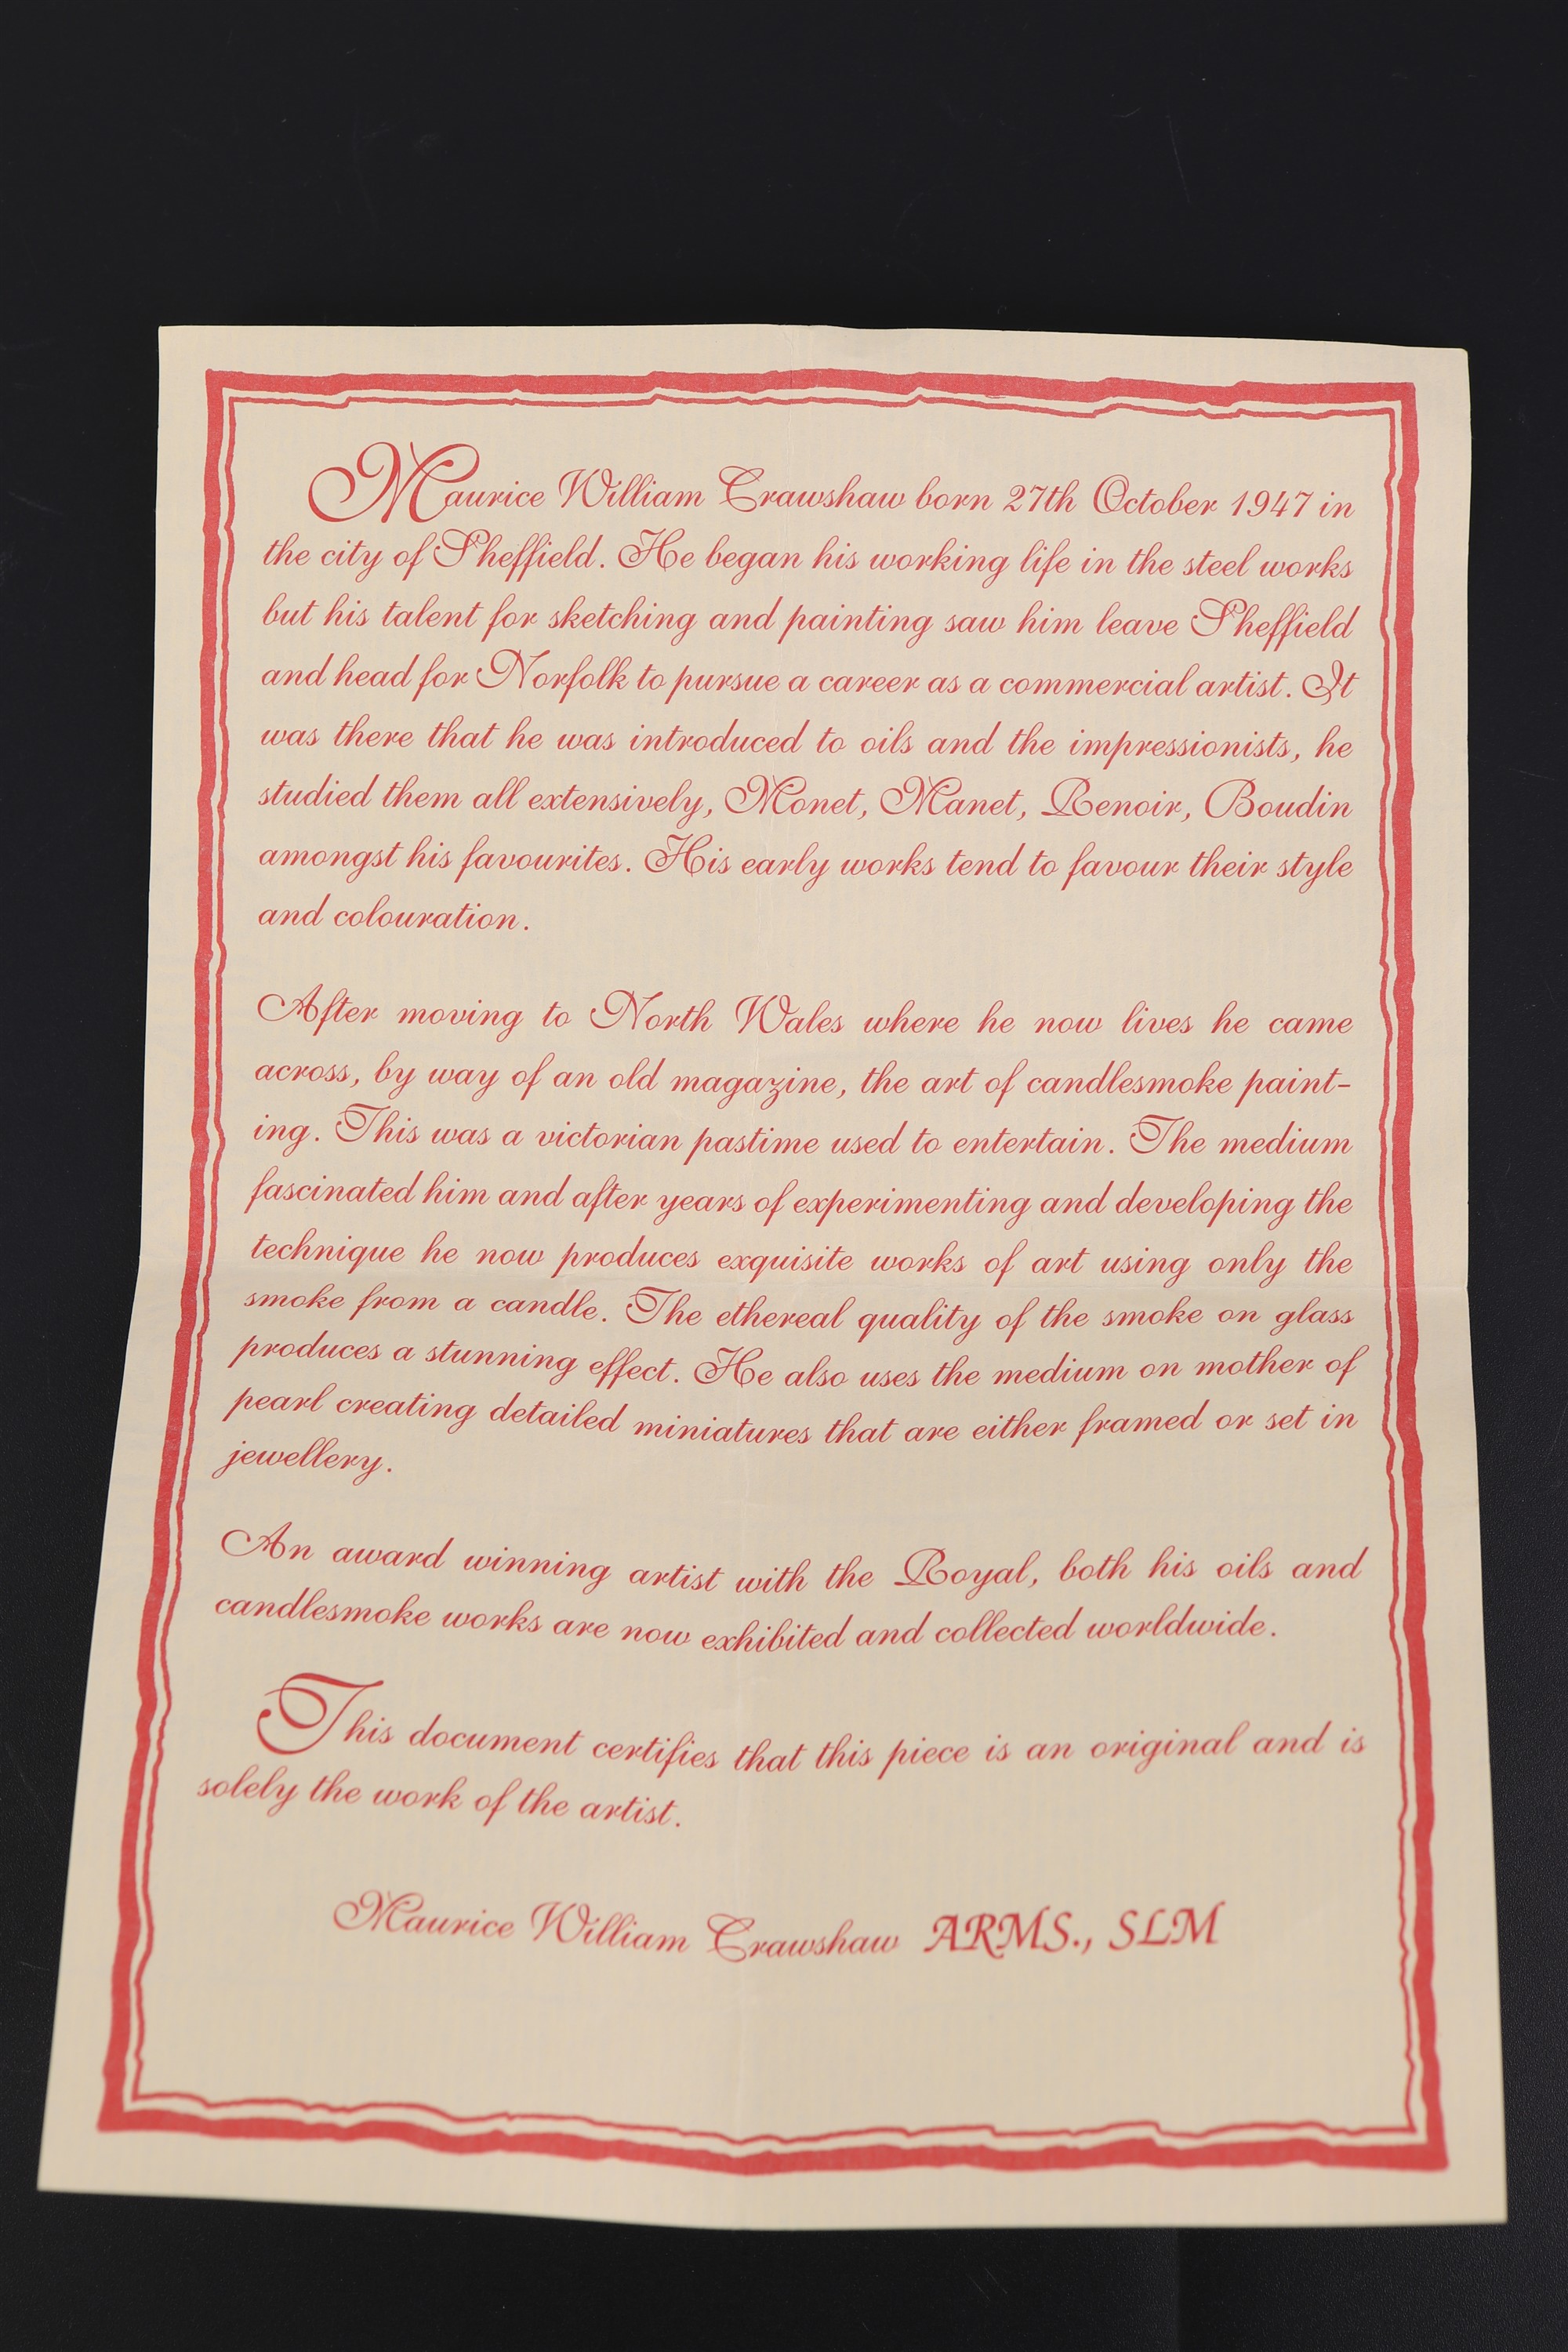 Maurice William Crawshaw born 27th October 1947 in
the city of Sheffield. He began his working life in the steel works
but his talent for sketching and painting saw him leave Sheffield
and head for Norfolk to pursue a career as a commercial artist. It
was there that he was introduced to oils and the impressionists, he
studied them all extensively, Monet, Manet, Renoir, Boudin
amongst his favourites. His early works tend to favour their style
and colouration.
After moving to North Wales where he now lives he came
across, by way of an old magazine, the art of candlesmoke paint-
ing. This was a victorian pastime used to entertain. The medium
fascinated him and after years of experimenting and developing the
technique he now produces exquisite works of art using only the
smoke from a candle. The ethereal quality of the smoke on glass
produces a stunning effect. He also uses the medium on mother of
pearl creating detailed miniatures that are either framed or set in
jewellery.
An award winning artist with the Royal, both his oils and
candlesmoke works are now exhibited and collected worldwide.
This document certifies that this piece is an original and is
solely the work of the artist.
Maurice William Crawshaw ARMS., SLM